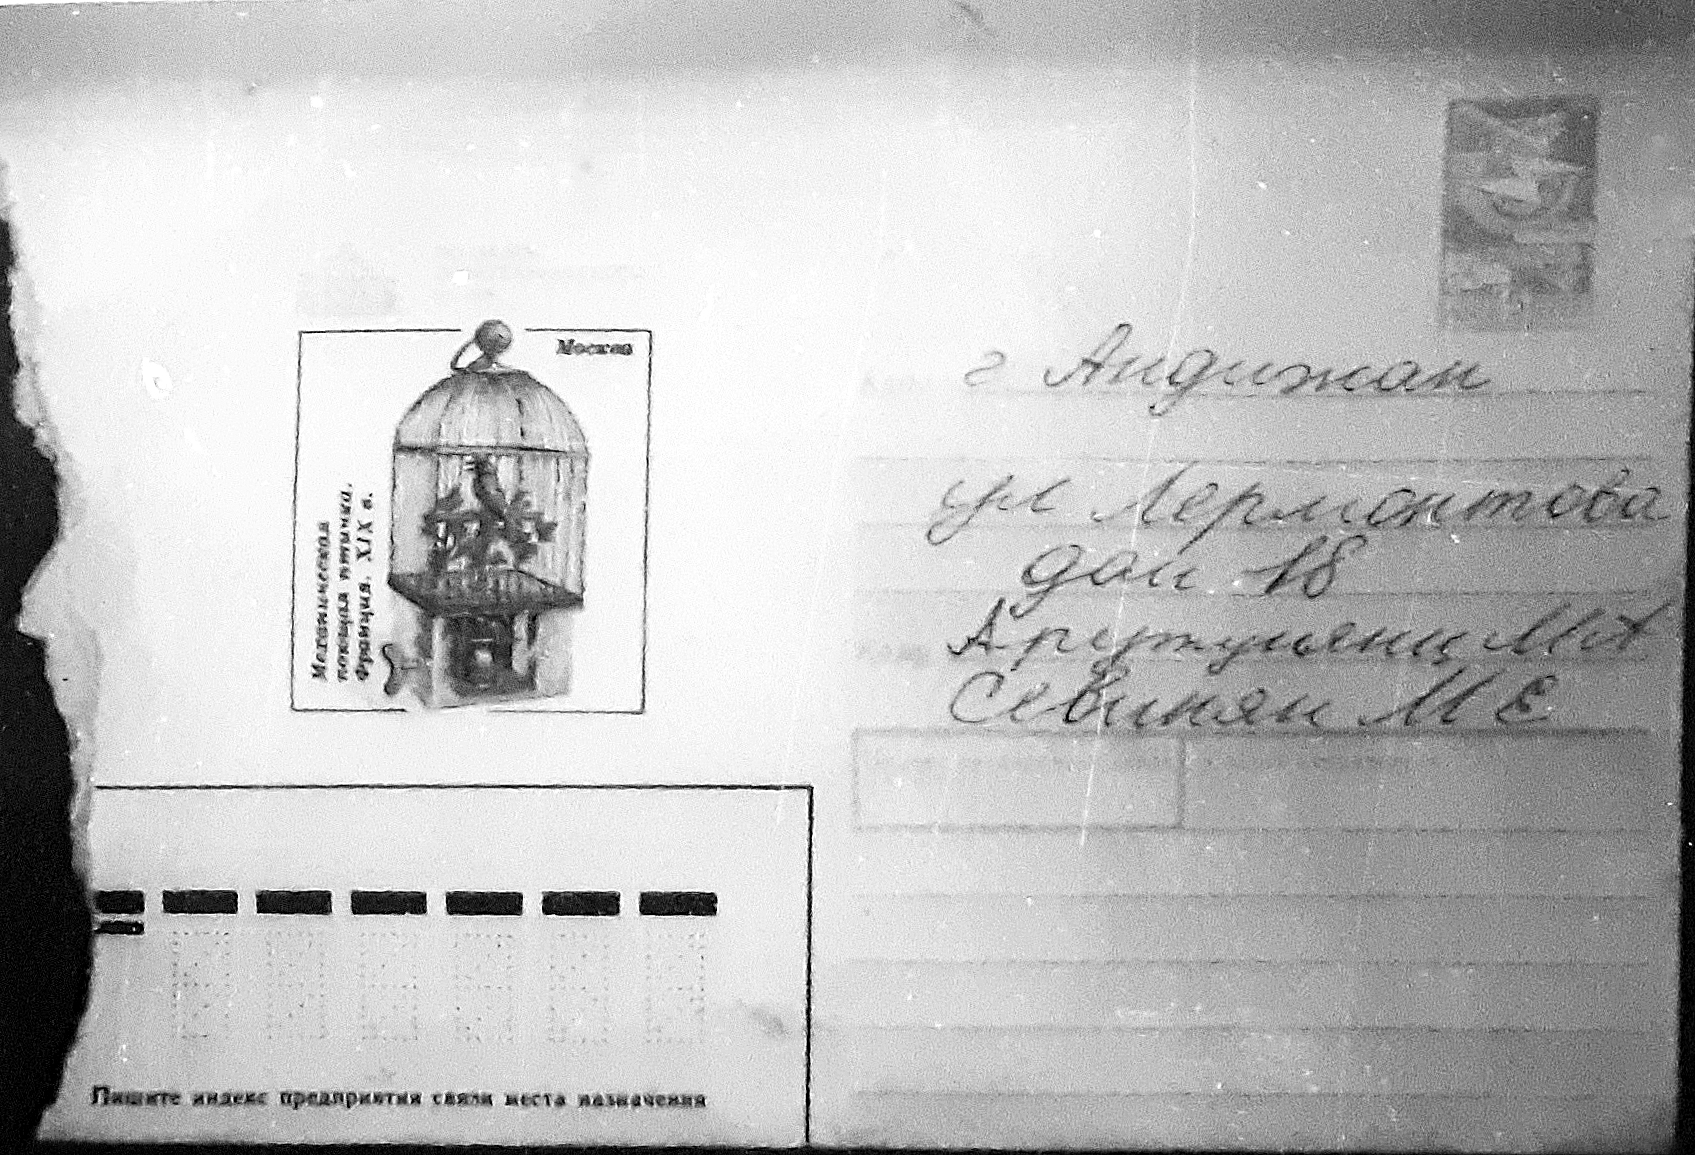 Москва
Механическая
поющая птичка.
Франция. XIX в.
г Андижан
ул Лермонтова
дом 18
Арутуньянц М А
Севинян М Е
Пишите индекс предприятия связи места назначения